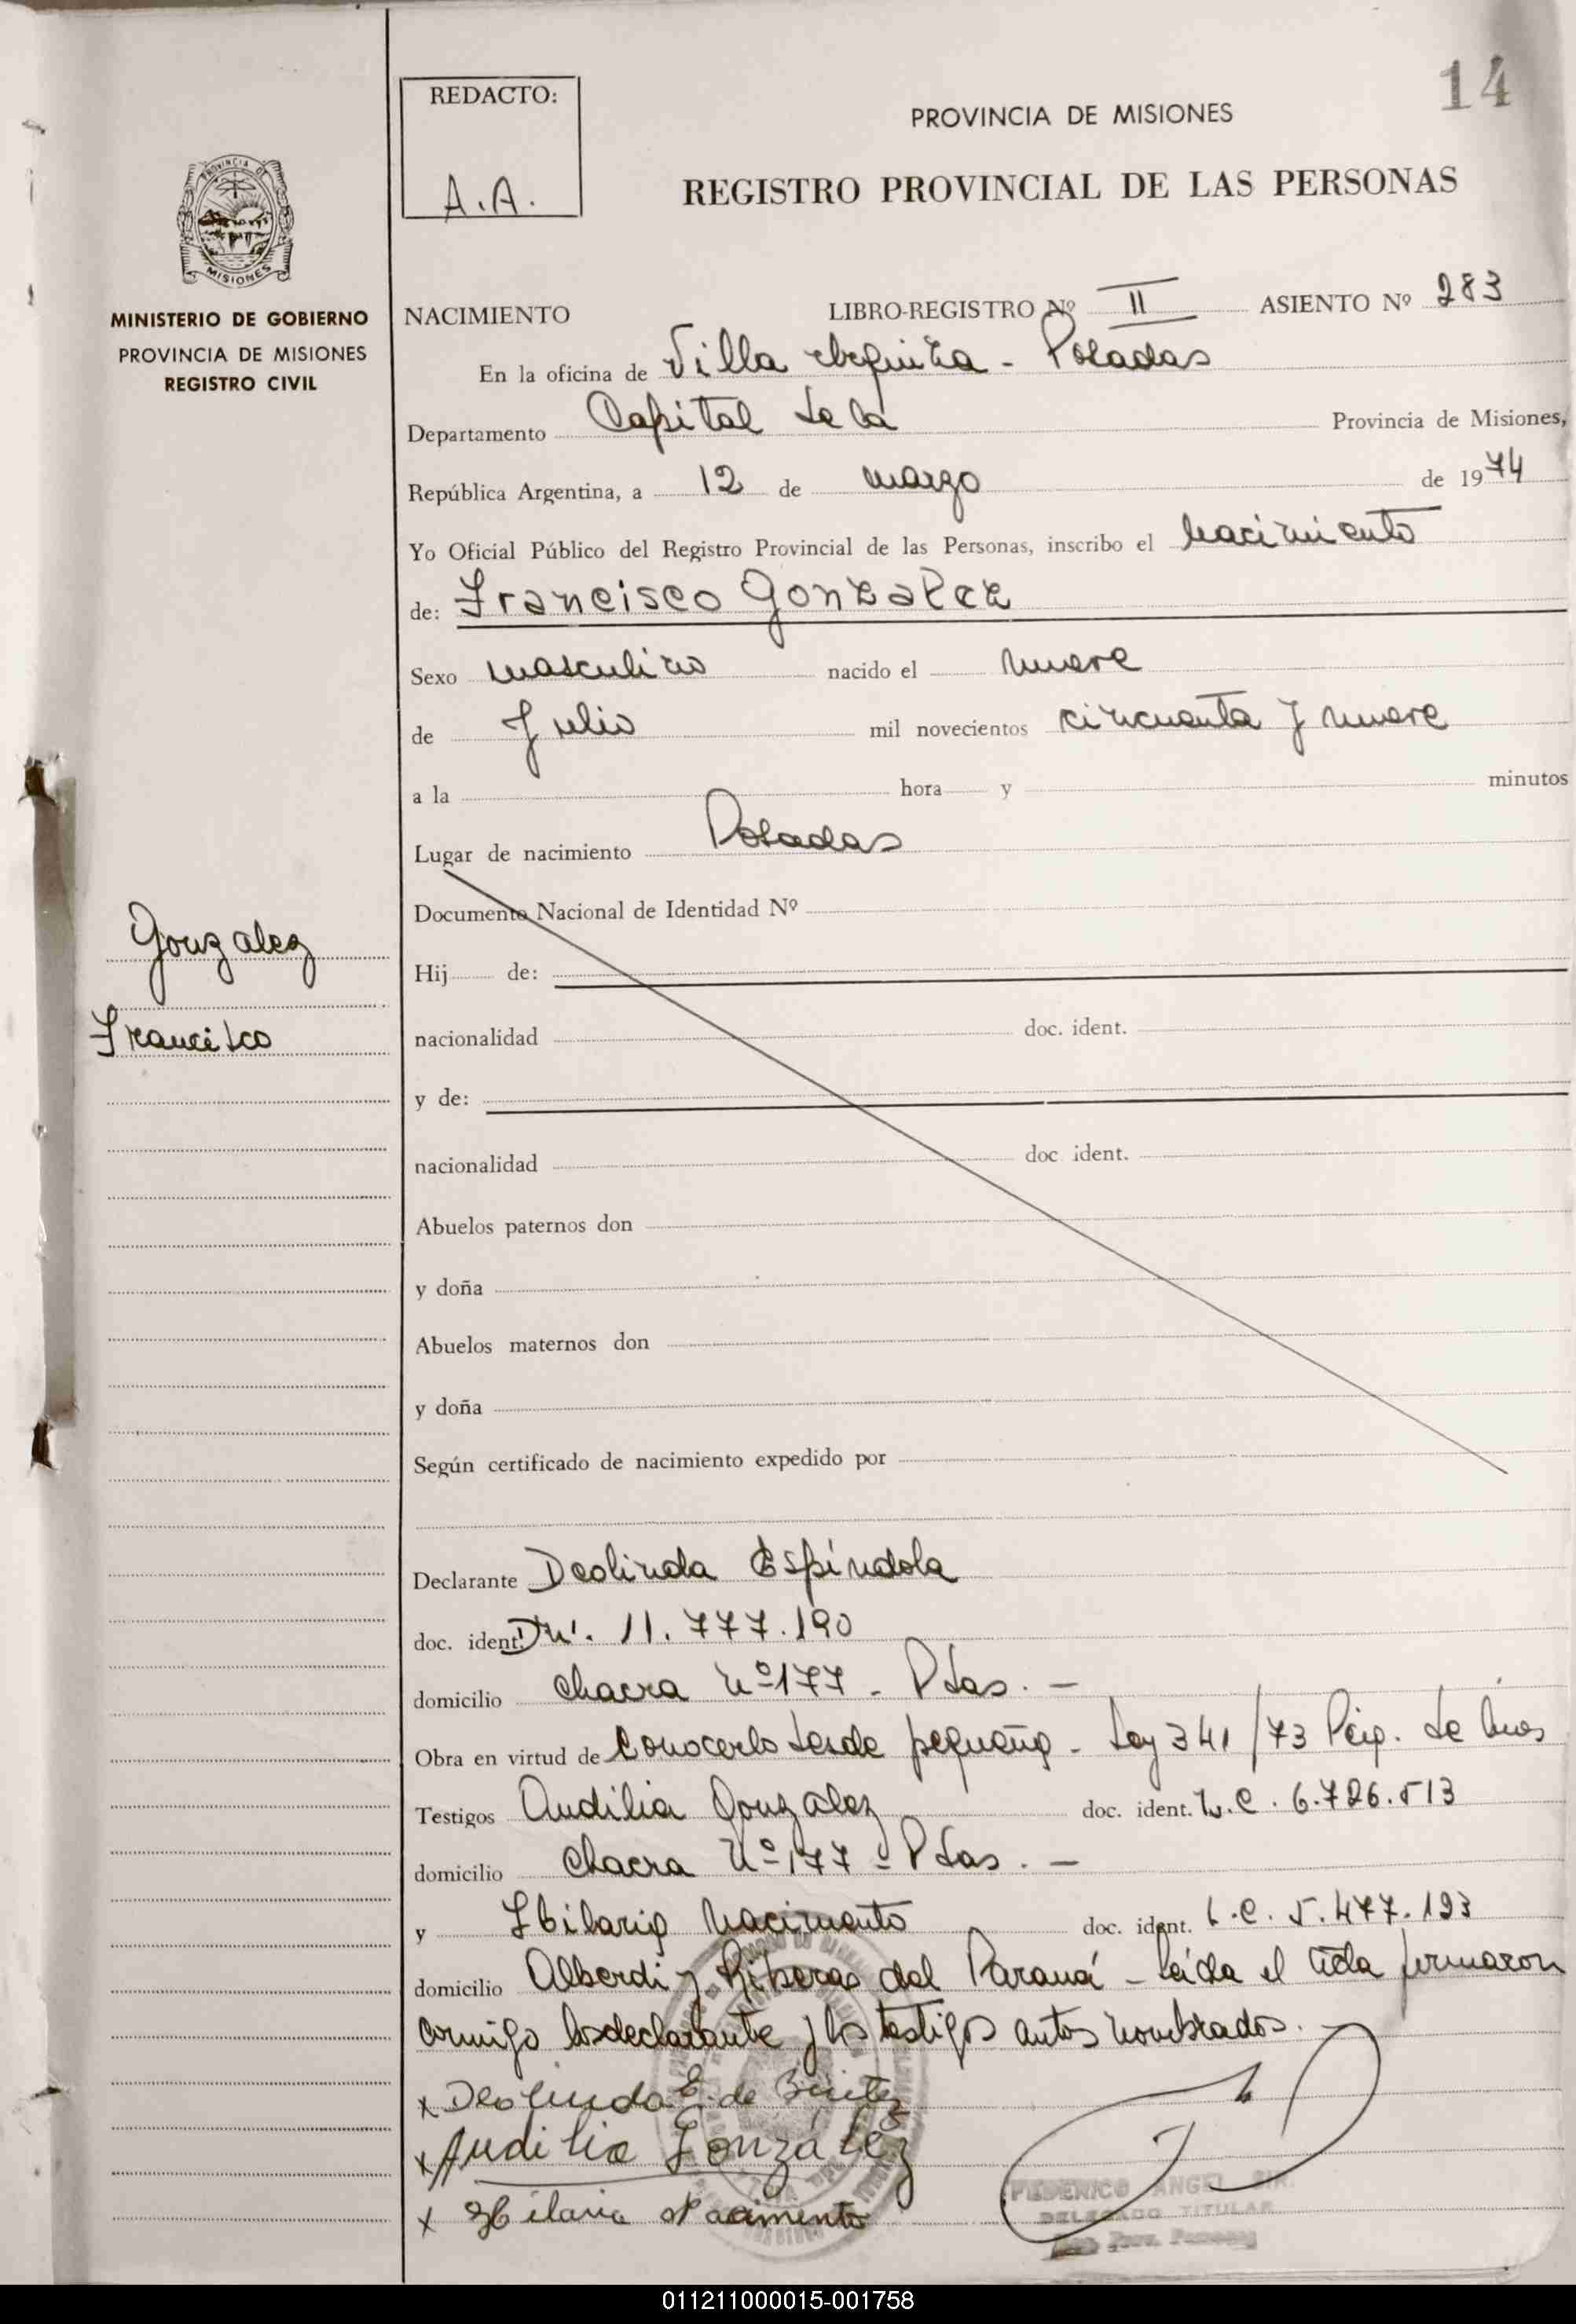 14
REDACTO:
A.A.
PROVINCIA DE MISIONES
REGISTRO PROVINCIAL DE LAS PERSONAS
PROVINCIA DE
MISIONES
MINISTERIO DE GOBIERNO
PROVINCIA DE MISIONES
REGISTRO CIVIL
NACIMIENTO LIBRO-REGISTRO Nº II ASIENTO Nº 283
En la oficina de Villa Urquiza - Posadas
Departamento Capital de la Provincia de Misiones,
República Argentina, a 12 de marzo de 1974
Yo Oficial Público del Registro Provincial de las Personas, inscribo el Nacimiento
de: Francisco Gonzalez
Sexo masculino nacido el nueve
de Julio mil novecientos cincuenta y nueve
a la hora y minutos
Lugar de nacimiento Posadas
Documento Nacional de Identidad Nº
Gonzalez
Francisco
Hij de:
nacionalidad doc. ident.
y de:
nacionalidad doc. ident.
Abuelos paternos don
y doña
Abuelos maternos don
y doña
Según certificado de nacimiento expedido por
Declarante Deolinda Espíndola
doc. ident. 11.777.190
domicilio Chacra Nº 177 - Pdas. -
Obra en virtud de Conocerlo desde pequeño - Ley 341/73
Testigos Audilia Gonzalez doc. ident. L.C. 6.726.513
domicilio Chacra Nº 177 - Pdas. -
y Hilaria Nacimento doc. ident. L.C. 5.477.193
domicilio Alberdi y Riberas del Paraná - leída el Acta firmaron
conmigo los declarante y los testigos antes nombrados.
x Deolinda E. de Benitez
x Audilia González
x Hilaria Nacimento
FEDERICO ANGEL
DELEGADO TITULAR
011211000015-001758